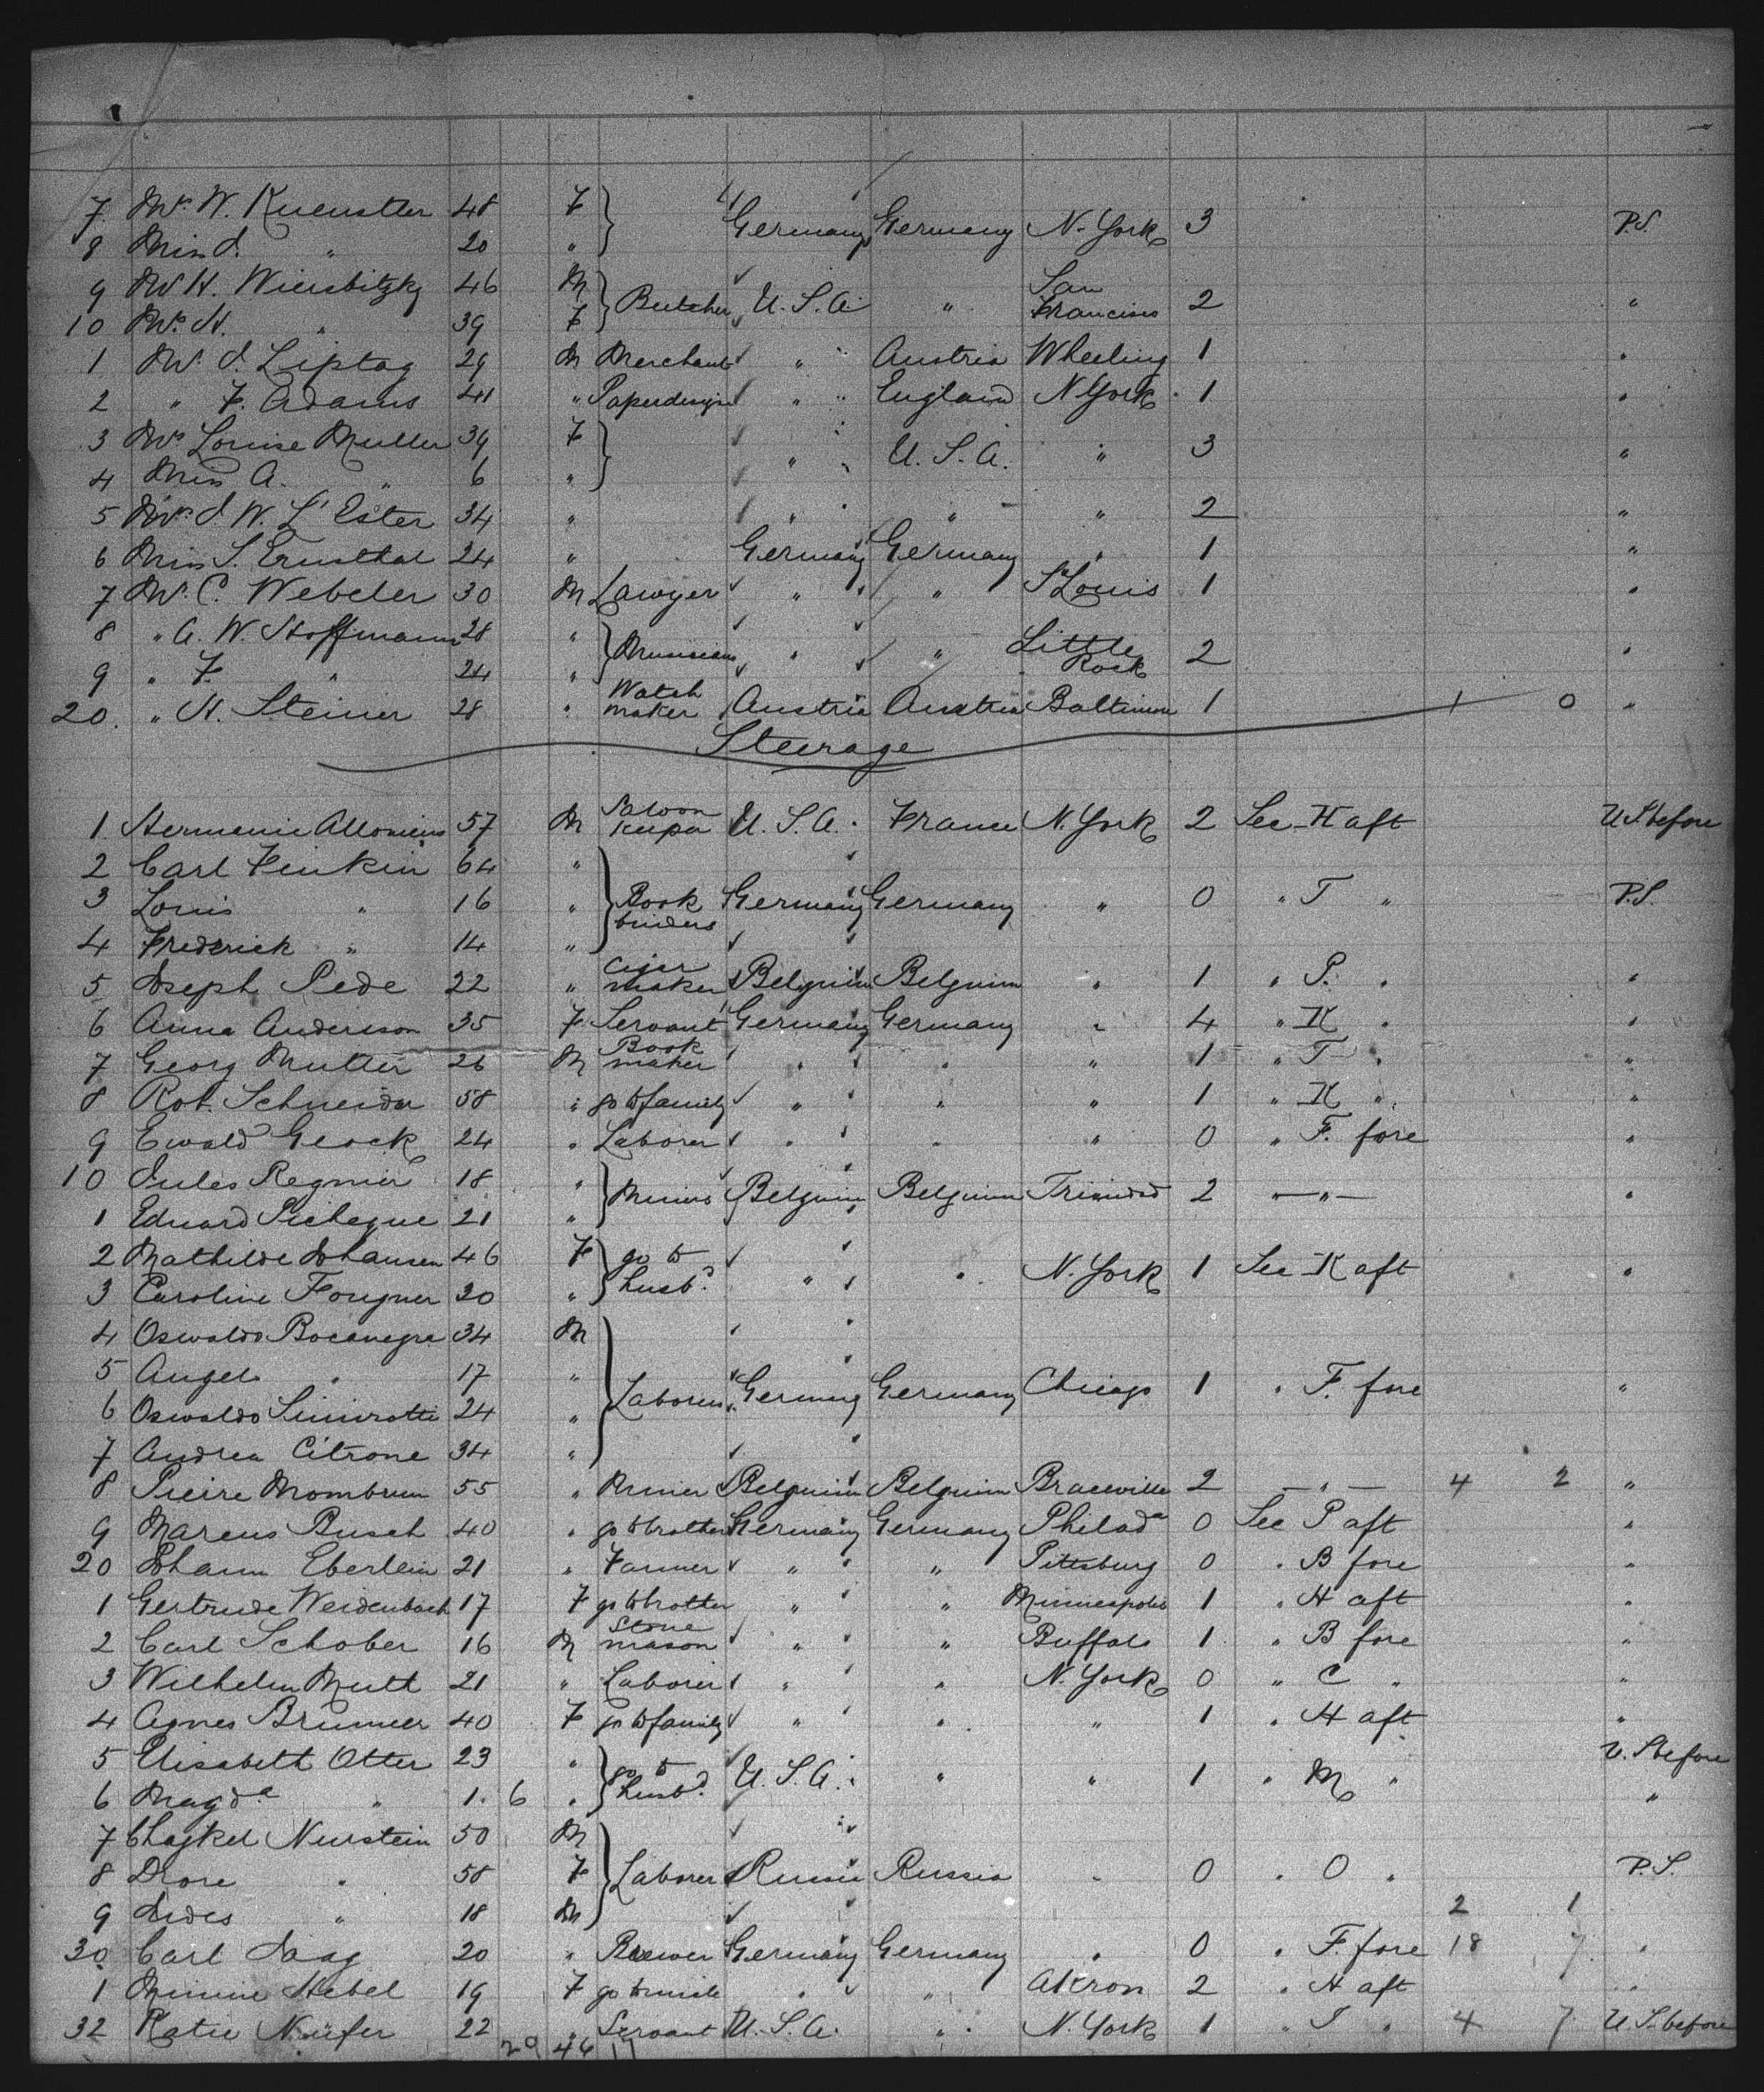 7 Mrs W. Kuenstler 48 F Germany Germany N. York 3 P.S.
8 Miss J. " 20 "
9 Mr H. Wiersbitzky 46 M Butcher U.S.A. " San Francisco 2 "
10 Mrs H. " 39 F
1 Mr. J. Liptag 29 M Merchant " Austria Wheeling 1 "
2 " F. Adams 41 " Paperdesign " England N York 1 "
3 Mrs Louise Muller 39 F " U.S.A. " 3 "
4 Miss A. " 6 "
5 Mrs J. W. L'Ester 34 " " " " 2 "
6 Miss S. Ernsthal 24 " Germany Germany " 1 "
7 Mr. C. Webeler 30 M Lawyer " " St Louis 1 "
8 " A. W. Hoffmann 28 " Musicians " " Little Rock 2 "
9 " F. " 24 "
20. " H. Steiner 28 " Watch maker Austria Austria Baltimore 1 1 0 "
Steerage
1 Hermenie 57 M Saloon keeper U.S.A. France N. York 2 See H aft U.S before
2 Carl Finkin 64 "
3 Louis " 16 " Book binders Germany Germany " 0 " T " P.S.
4 Frederick " 14 "
5 Joseph Pede 22 " Cigar maker Belgium Belgium " 1 " P. " "
6 Anna Andersson 35 F Servant Germany Germany " 4 " H " "
7 Georg Muller 26 M Book maker " " " 1 " T " "
8 Rob. Schneider 58 " go to family " " " 1 " H " "
9 Ewald Glock 24 " Laborer " " " 0 " F. fore "
10 Jules Regnier 18 " Miners Belgium Belgium Trinidad 2 — " — "
1 Eduard 21 "
2 Mathilde Johansen 46 F go to husbd. " " N. York 1 See K aft "
3 Caroline Fougner 20 "
4 Oswaldo Bocanegra 34 M
5 Angelo " 17 " Laborers Germany Germany Chicago 1 " F. fore "
6 Oswaldo 24 "
7 Andrea Citrone 34 "
8 Pieire Mombrun 55 " Miner Belgium Belgium Braceville 2 — " — 4 2 "
9 Marcus Busch 40 " go to brother Germany Germany Philada 0 See P aft "
20 Johann Eberlein 21 " Farmer " " Pittsburg 0 " B fore "
1 Gertrude Weidenbach 17 F go to brother " " Minneapolis 1 " H aft "
2 Carl Schober 16 M Stone mason " " Buffalo 1 " B fore "
3 Wilhelm Muth 21 " Laborer " " N. York 0 " C " "
4 Agnes Brunner 40 F go to family " " " 1 " H aft "
5 Elisabeth Otter 23 " go to husbd. U.S.A. " " 1 " M " U. S before
6 Magda " 1. 6 " "
7 Chajkel Neustein 50 M
8 Drore " 58 F Laborer Russia Russia " 0 " O " P.S.
9 " 18 M 2 1
30 Carl 20 " Brewer Germany Germany " 0 " F. fore 18 7 "
1 Minnie Hebel 19 F go to uncle " " Akron 2 " H aft "
32 Katie Neufer 22 " Servant U.S.A. " N. York 1 " J " 4 7 U.S. before
29 46 17